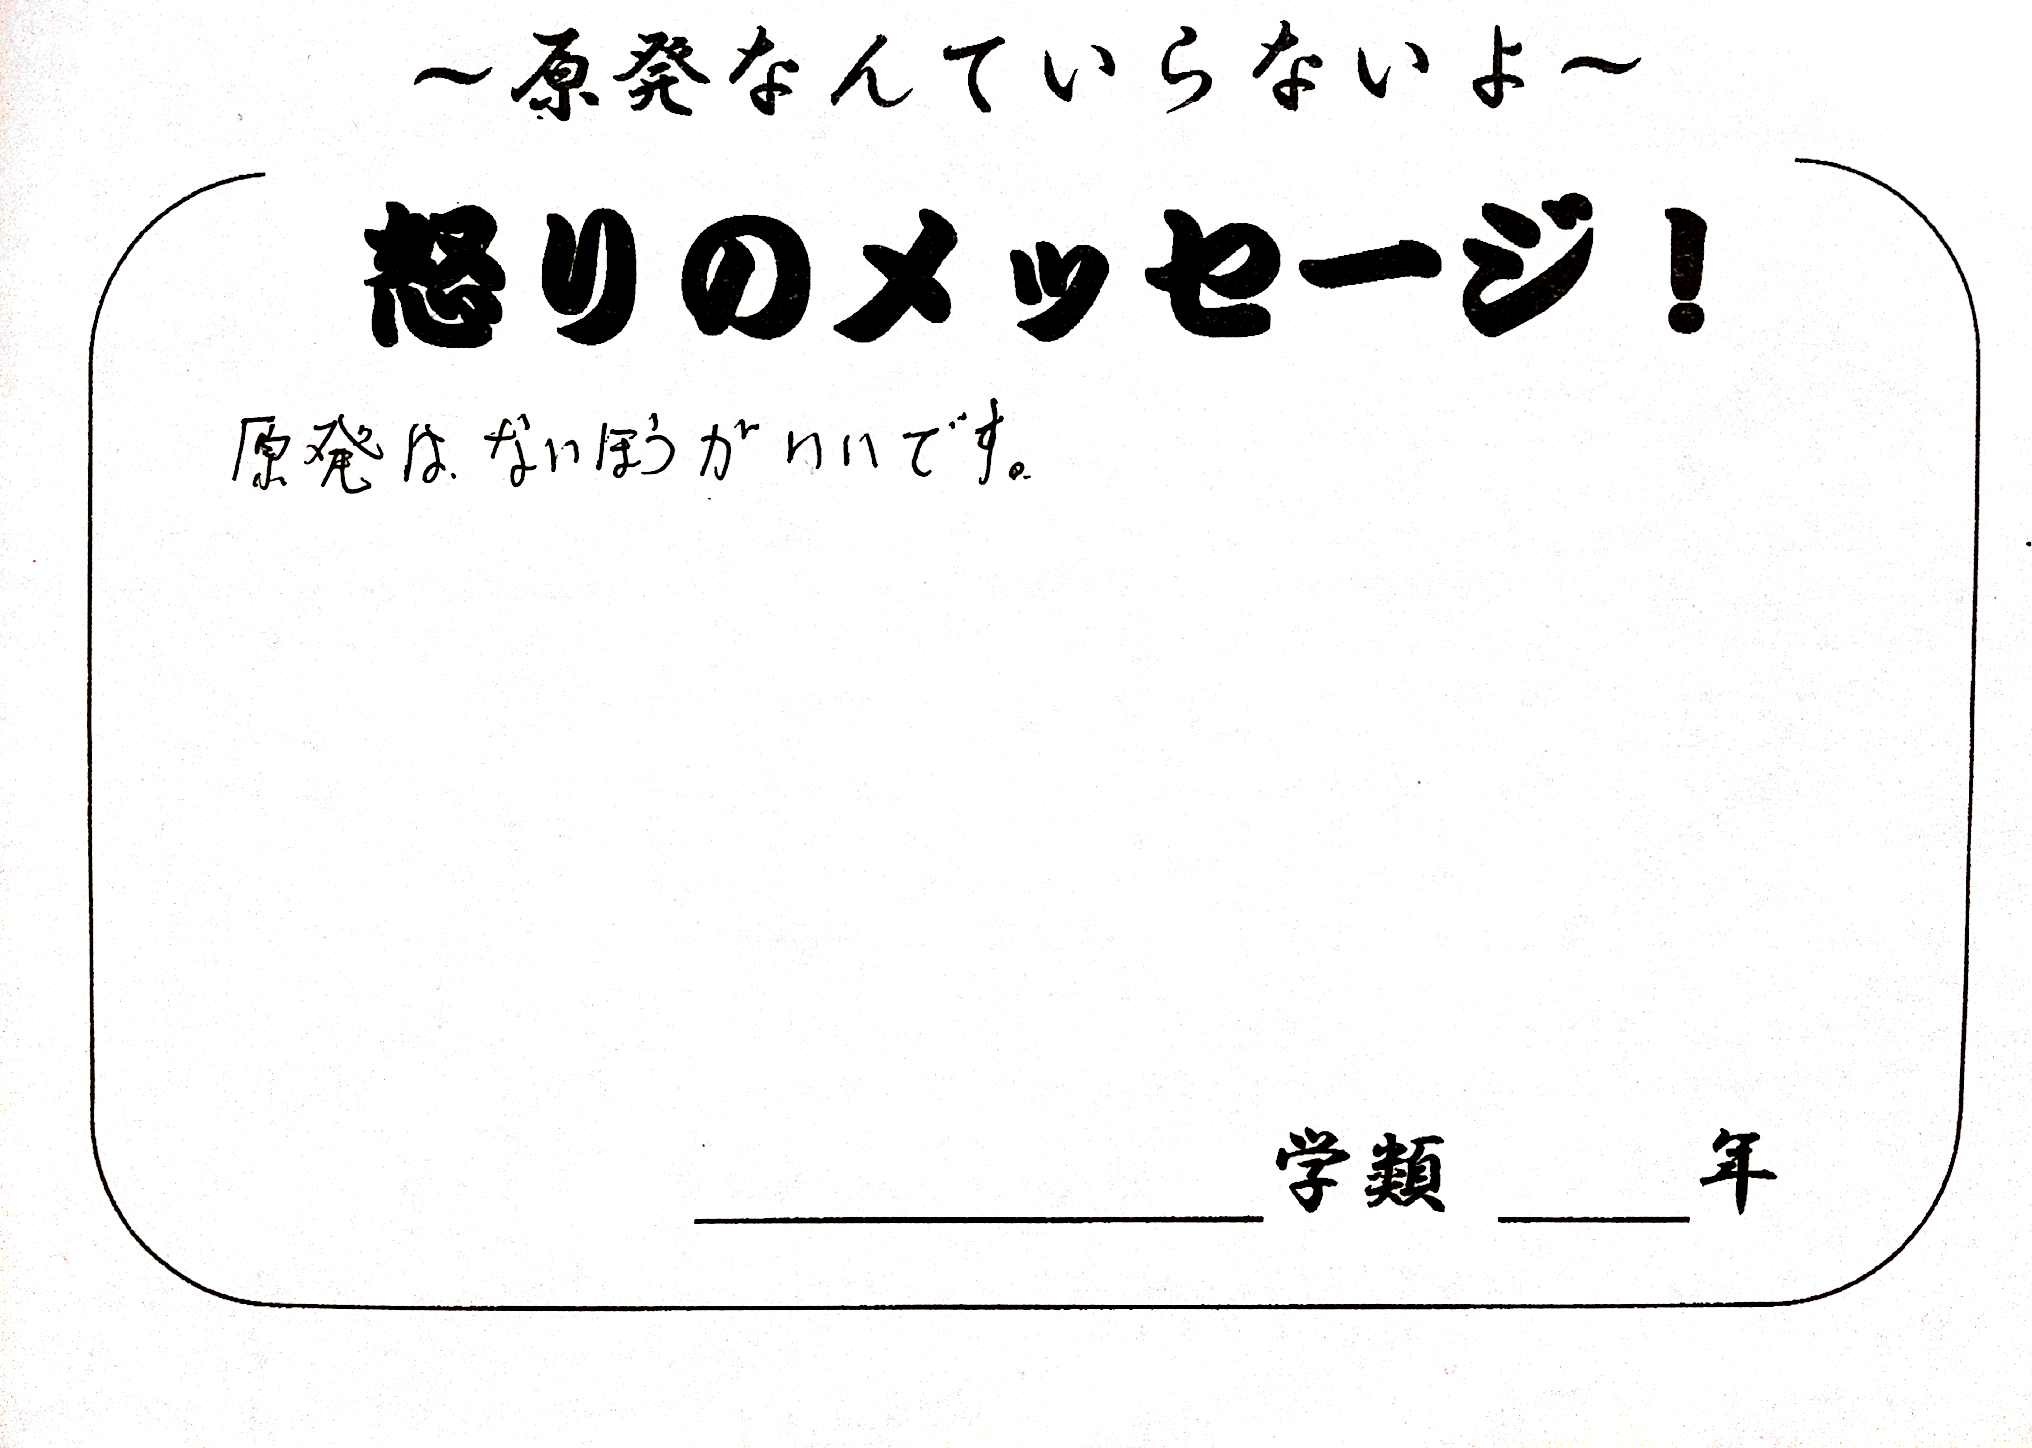 〜原発なんていらないよ〜
怒りのメッセージ！
原発は、ないほうがいいです。
学類 年